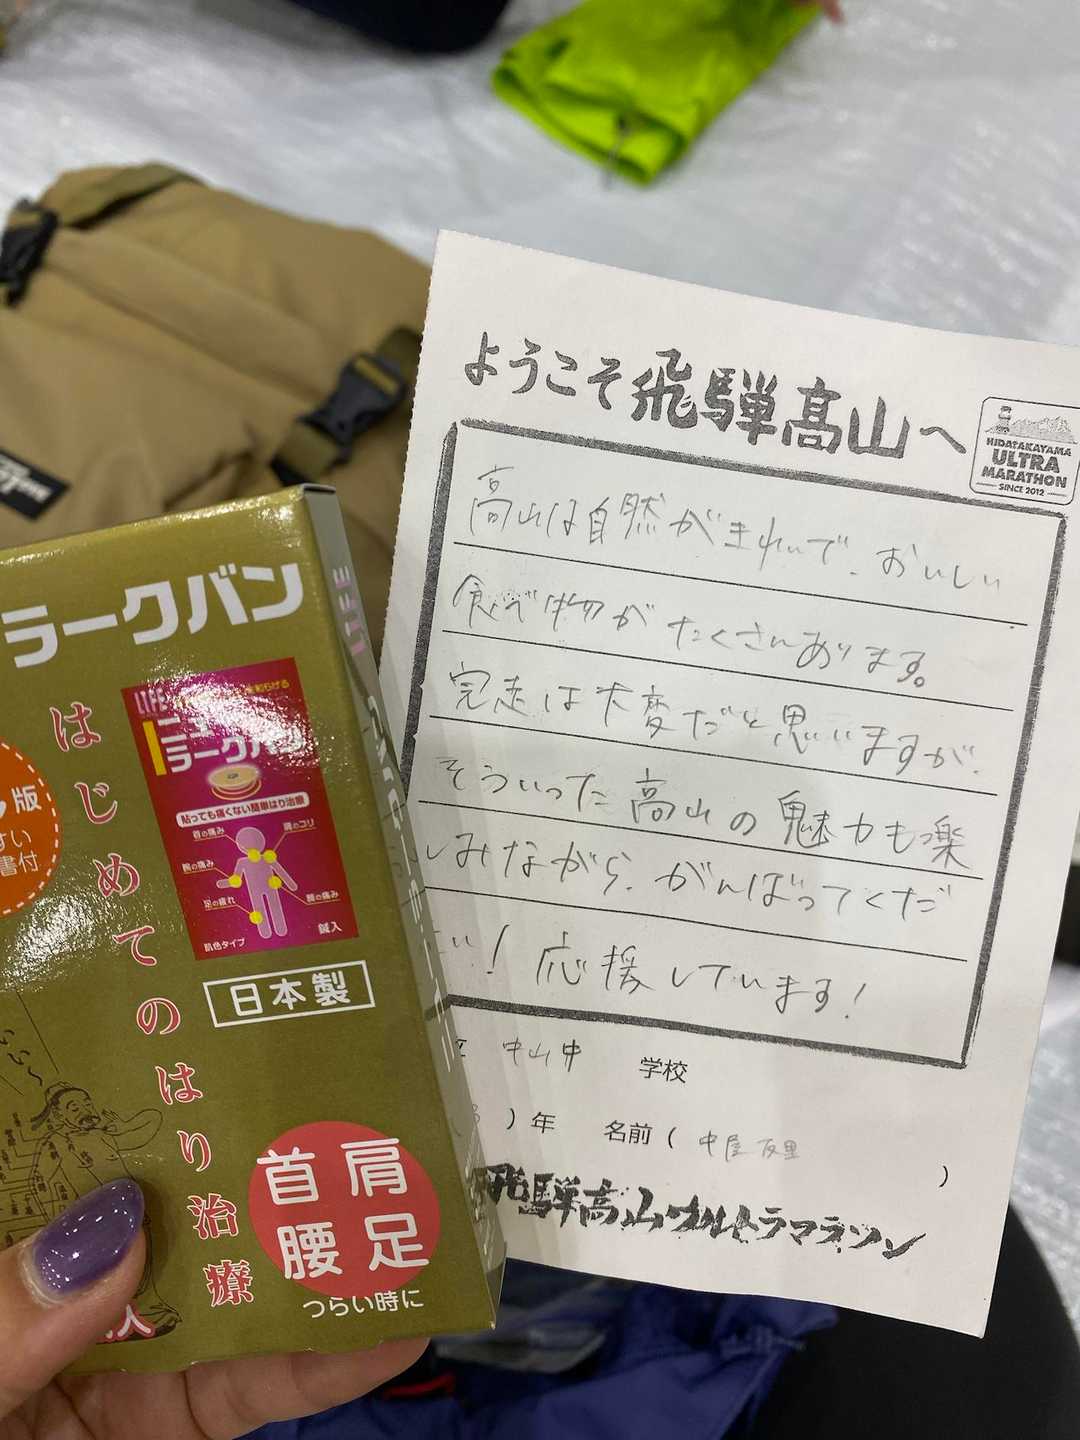 ようこそ飛騨高山へ
HIDATAKAYAMA
ULTRA
MARATHON
SINCE 2012
高山は自然がきれいで、おいしい
食べ物がたくさんあります。
完走は大変だと思いますが、
そういった高山の魅力も楽
しみながら、がんばってくだ
さい！応援しています！
中山中 学校
）年 名前（ 中屋友里 ）
飛騨高山ウルトラマラソン
ラークバン
LIFE
はじめてのはり治療
版
すい
書付
LIFE
ニュー
ラークバン
貼っても痛くない簡単はり治療
首の痛み
肩のコリ
腕の痛み
足の疲れ
腰の痛み
鍼入
肌色タイプ
日本製
首 肩
腰 足
つらい時に